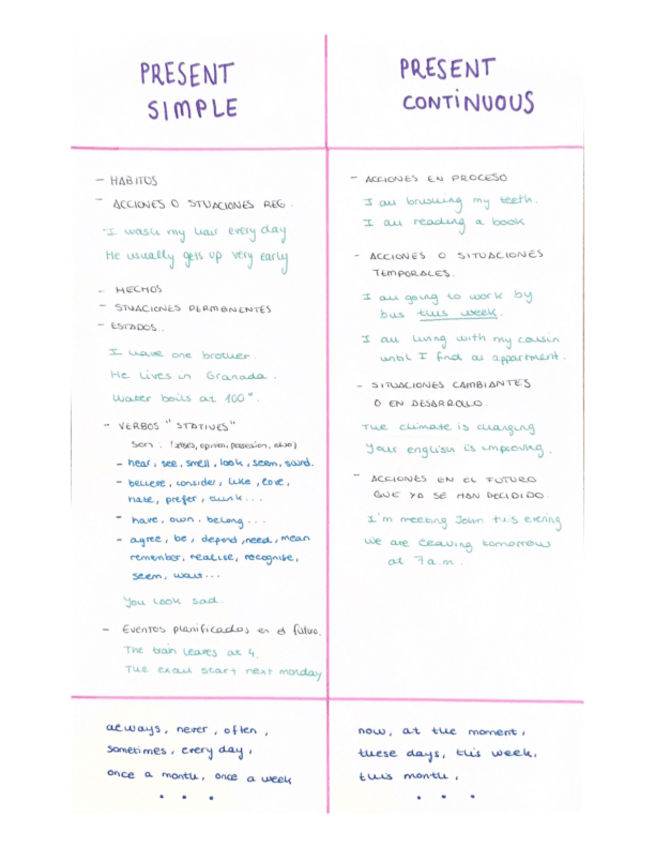 PRESENT
SIMPLE
- HABITOS
- ACCIONES O STUACIONES REG.
I wash my hair every day
He usually gets up very early
- HECHOS
- STUACIONES PERMANENTES
- ESTADOS.
I have one brother.
He lives in Granada.
Water boils at 100°.
- VERBOS "STATIVES"
son: (senses, opinion, possesion,
- hear, see, smell, look, seem, sound.
- believe, consider, like, love,
hate, prefer, think...
- have, own, belong...
- agree, be, depend, need, mean
remember, realise, recognise,
seem, want...
You look sad.
- Eventos planificados en el futuro.
The train leaves at 4.
The exam start next monday
always, never, often,
sometimes, every day,
once a month, once a week
. . .
PRESENT
CONTINUOUS
- ACCIONES EN PROCESO
I am brushing my teeth.
I am reading a book
- ACCIONES O SITUACIONES
TEMPORALES.
I am going to work by
bus this week.
I am living with my cousin
until I find an appartment.
- SITUACIONES CAMBIANTES
O EN DESARROLLO.
The climate is changing
Your english is improving.
- ACCIONES EN EL FUTURO
QUE YA SE HAN DECIDIDO.
I'm meeting John this evening
We are leaving tomorrow
at 7a.m.
now, at the moment,
these days, this week,
this month,
. . .